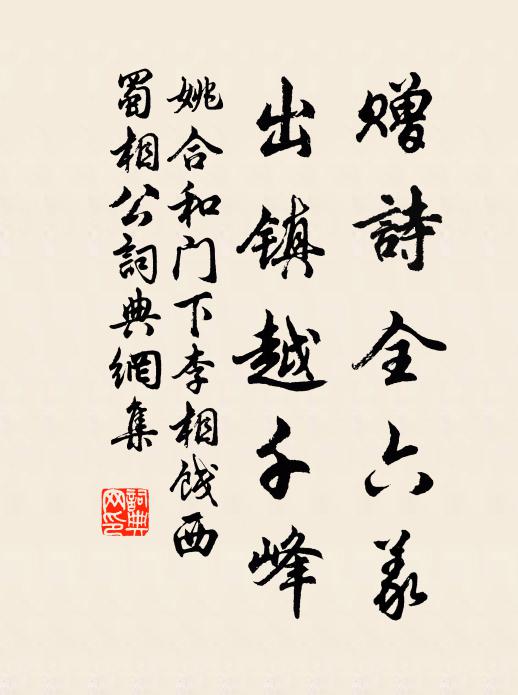 赠詩全六義
出镇越千峰
姚合和门下李相饯西
蜀相公詞典網集
詞典網印